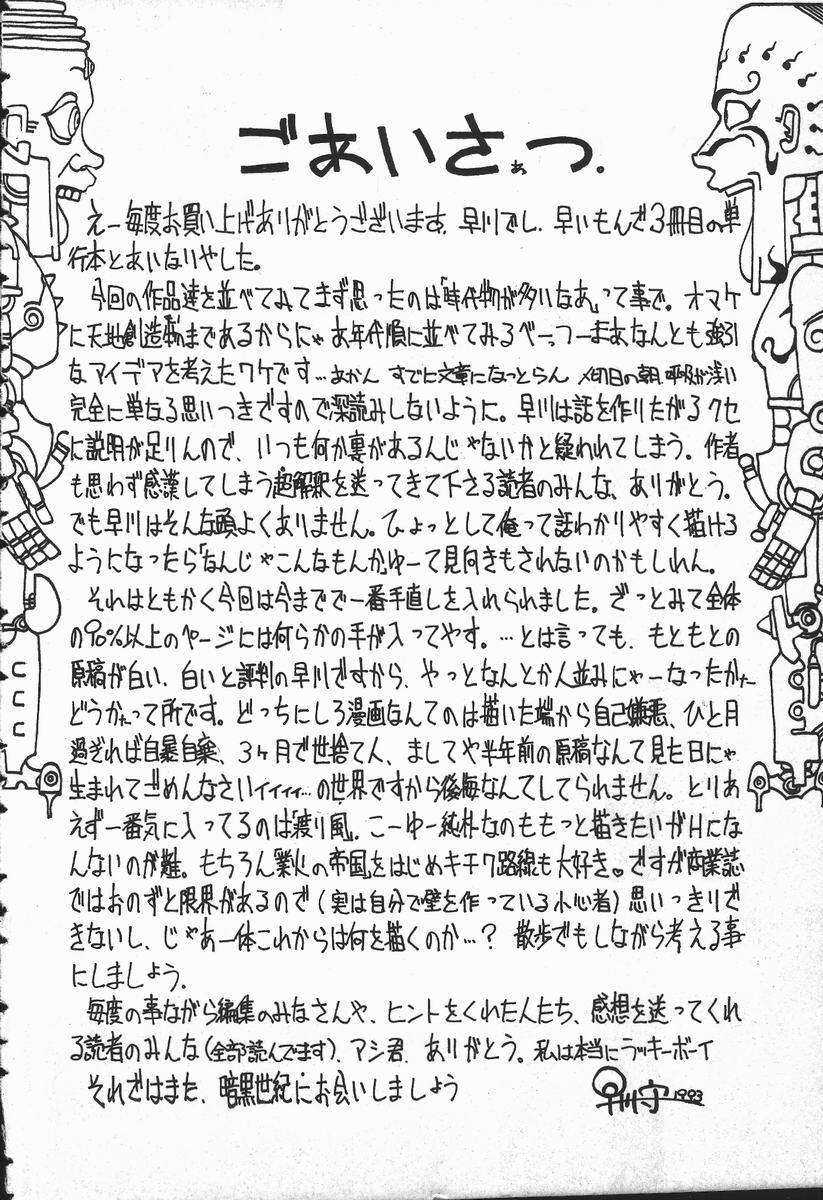 ごあいさぁつ.
えー毎度お買い上げありがとうございます。早川でし. 早いもんで3冊目の単
行本とあいなりやした。
今回の作品達を並べてみてまず思ったのは「時代物が多いなあ」って事で。オマケ
に天地創造まであるからにゃお年代順に並べてみるべーっつーまあなんとも強引
なアイデアを考えたワケです…あかん すでに文章になっとらん 〆切日の朝、呼吸が浅い
完全に単なる思いつきですので深読みしないように。早川は話を作りたがるクセ
に説明が足りんので、いつも何か裏があるんじゃないかと疑われてしまう。作者
も思わず感謝してしまう超解釈を送ってきて下さる読者のみんな、ありがとう。
でも早川はそんな頭よくありません。ひょっとして俺って話わかりやすく描ける
ようになったら「なんじゃこんなもんかゆーて見向きもされないのかもしれん。
それはともかく今回は今までで一番手直しを入れられました。ざっとみて全体
の90%以上のページには何らかの手が入ってやす。…とは言っても、もともとの
原稿が白い、白いと評判の早川ですから、やっとなんとか人並みにゃーなったかなー
どうかなって所です。どっちにしろ漫画なんてのは描いた端から自己嫌悪、ひと月
過ぎれば自暴自棄、3ヶ月で世捨て人、ましてや半年前の原稿なんて見た日にゃ
生まれてごめんなさいィィィィ…の世界ですから後悔なんてしてられません。とりあ
えず一番気に入ってるのは「渡り風」。こーゆー純朴なのももっと描きたいがHにな
んないのが難。もちろん「業火の帝国」をはじめキチク路線も大好き♥ですが商業誌
ではおのずと限界があるので(実は自分で壁を作っている小心者)思いっきりで
きないし、じゃあ一体これからは何を描くのか…? 散歩でもしながら考える事
にしましょう.
毎度の事ながら編集のみなさんや、ヒントをくれた人たち、感想を送ってくれ
る読者のみんな(全部読んでます)、アシ君、ありがとう。私は本当にラッキーボーイ
それではまた、暗黒世紀にお会いしましょう
早川守 1993